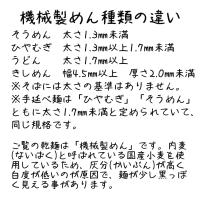 機械製めん種類の違い
そうめん　太さ1.3㎜未満
ひやむぎ　太さ1.3㎜以上1.7㎜未満
うどん　太さ1.7㎜以上
きしめん　幅4.5㎜以上　厚さ2.0㎜未満
※そばには太さの基準はありません。
※手延べ麺は「ひやむぎ」「そうめん」
ともに太さ1.7㎜未満と定められていて、
同じ規格です。
ご覧の乾麺は「機械製めん」です。内麦
(ないばく)と呼ばれている国産小麦を使
用しているため、灰分(かいぶん)が高く
白度が低いのが原因で、麺が少し黒っぽ
く見える事があります。